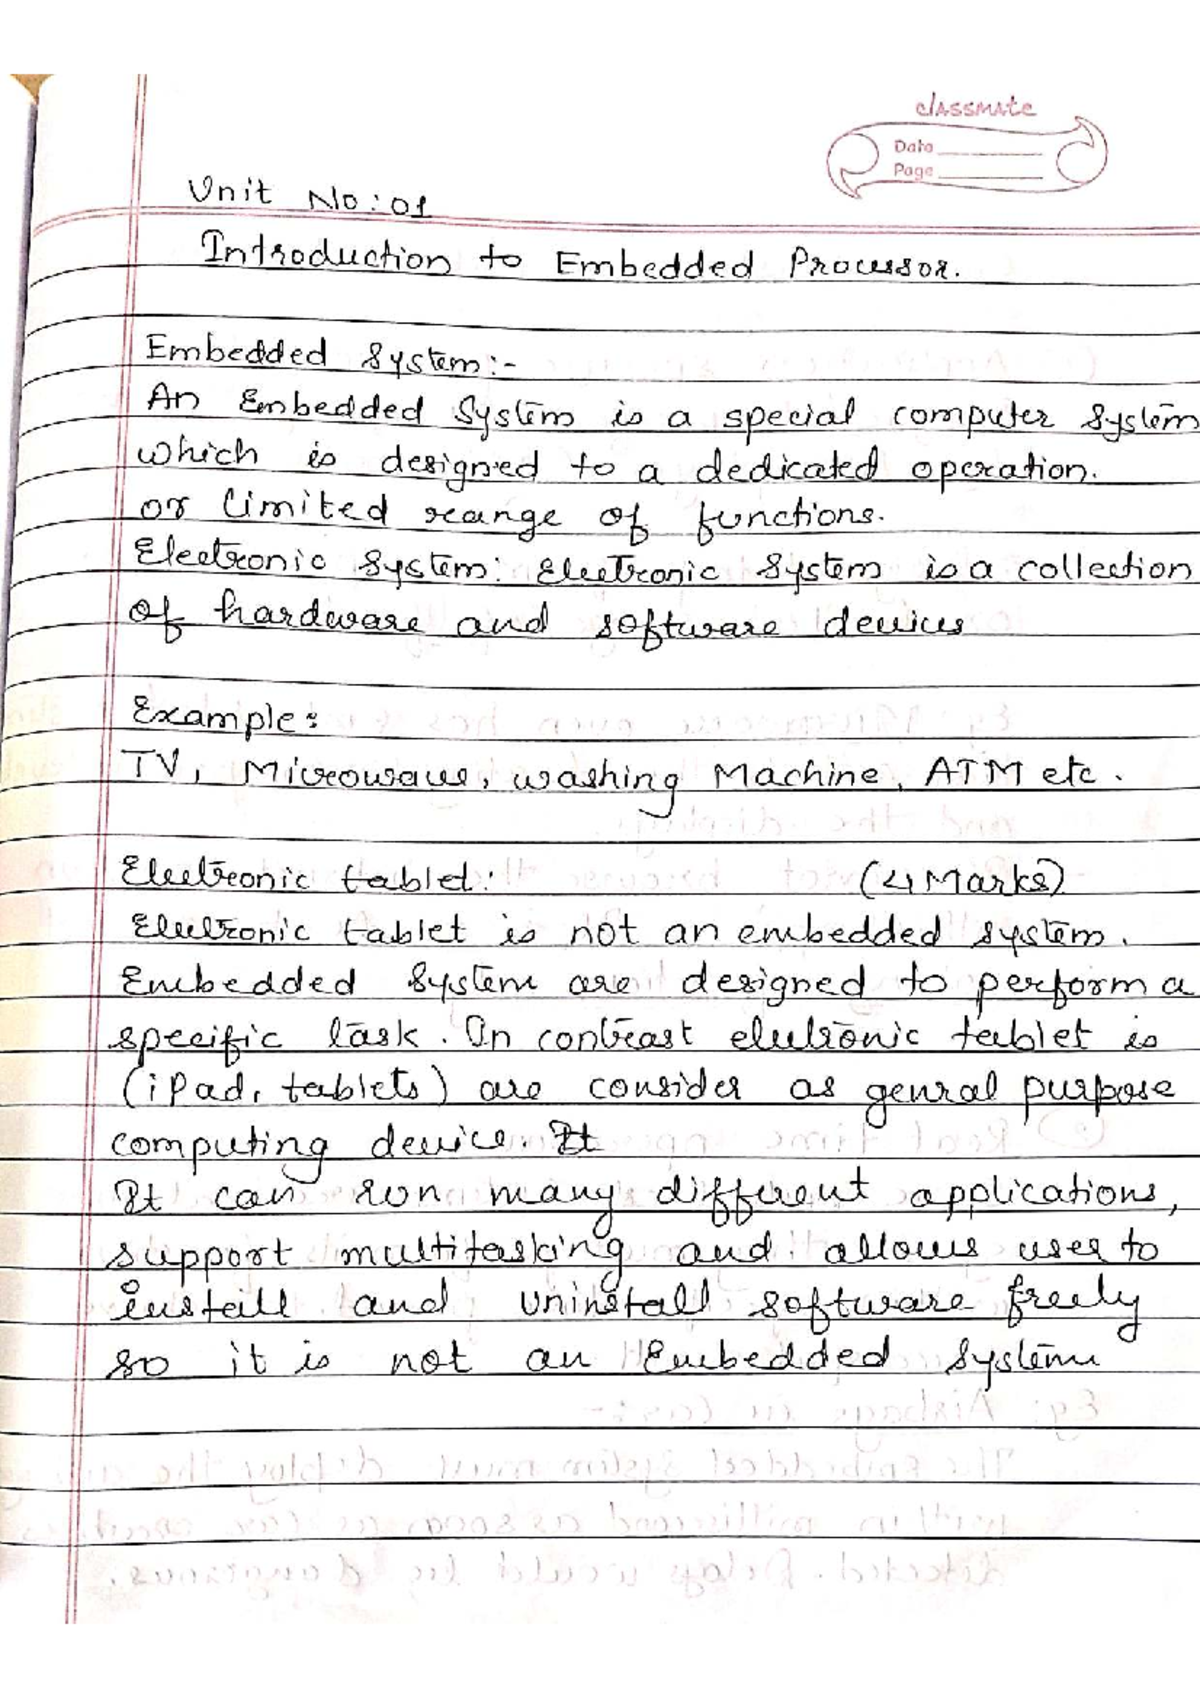 classmate
Date
Page
Unit No: 01
Introduction to Embedded Processor.
Embedded System:-
An Embedded System is a special computer system
which is designed to a dedicated operation.
or limited reange of functions.
Electronic System: Electronic System is a collection
of hardware and software devices
Example:
TV, Microwave, washing Machine, ATM etc.
Electronic tablet: (4 Marks)
Electronic tablet is not an embedded system.
Embedded System are designed to perform a
specific task. In contreast electronic tablet is
(iPad, tablets) are consider as genral purpose
computing device. It
It can run many different applications,
support multitasking and allows user to
install and Uninstall software freely
so it is not an Embedded System